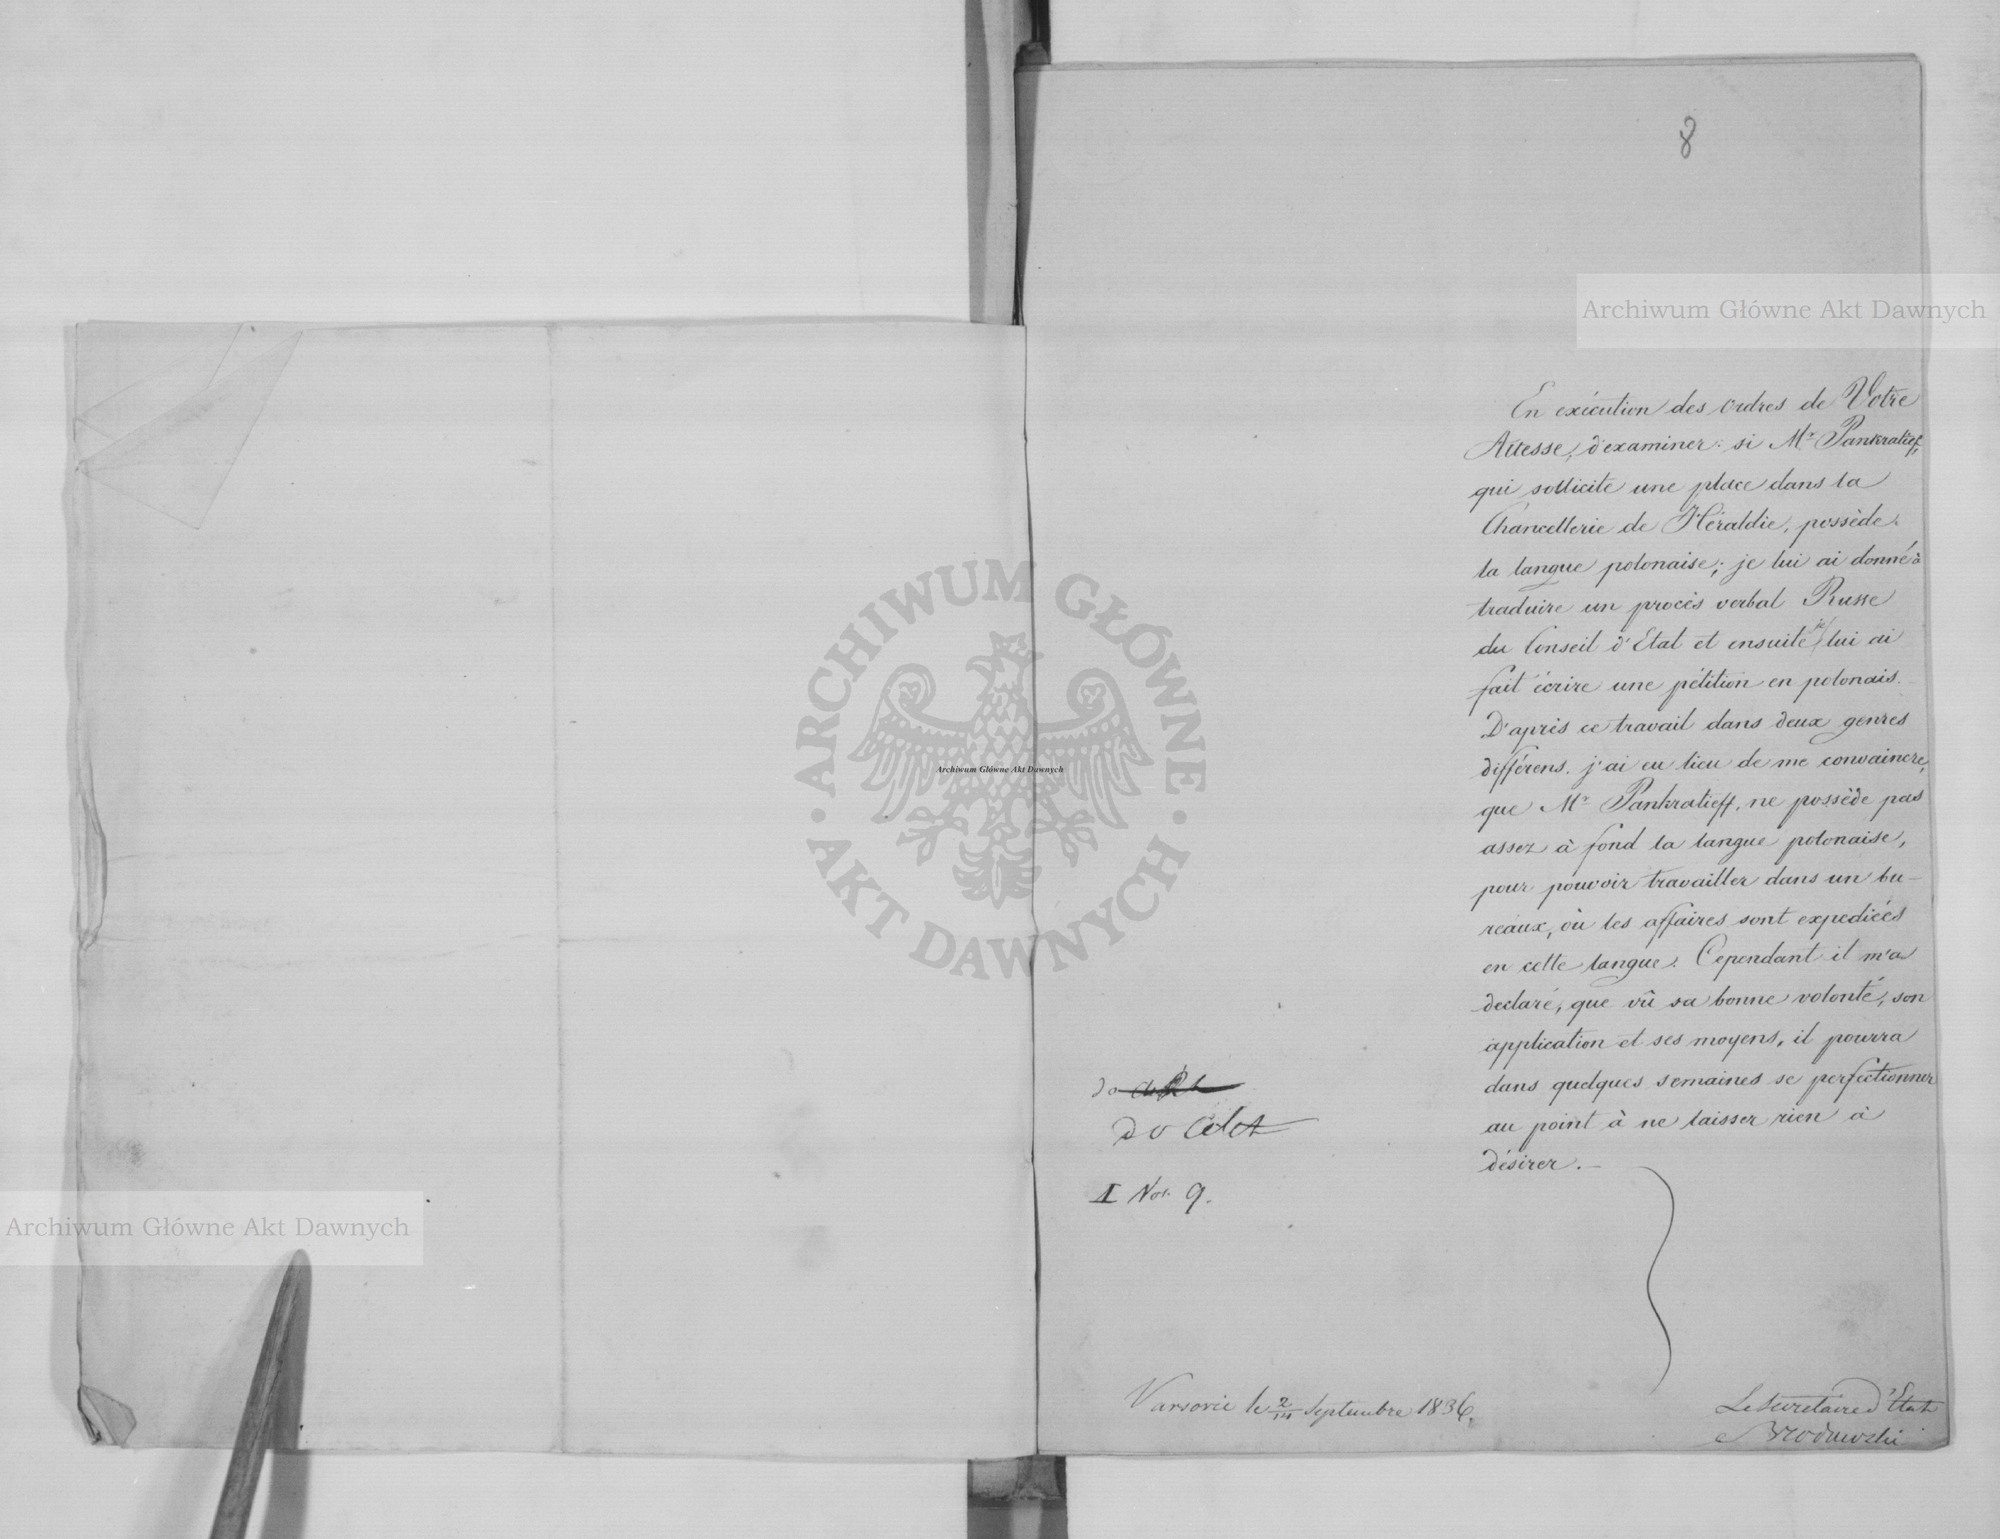 8
En exécution des ordres de Votre
Altesse, d'examiner: si Mr Pankratieff,
qui sollicite une place dans la
Chancellerie de Héraldie, possède
la langue polonaise; je lui ai donné à
traduire un procès verbal Russe
du Conseil d'Etat et ensuite je lui ai
fait écrire une pétition en polonais.
D'après ce travail dans deux genres
différens. j'ai eu lieu de me convaincre,
que Mr Pankratieff, ne possède pas
assez à fond la langue polonaise,
pour pouvoir travailler dans un bu-
reaux, où les affaires sont expediées
en cette langue. Cependant il m'a
declaré, que vû sa bonne volonté, son
application et ses moyens, il pourra
dans quelques semaines se perfectionner
au point à ne laisser rien à
désirer.—
do
do Akt
I Nor. 9.
Varsovie le 2/14 Septembre 1836.
Le Secretaire d'Etat
Archiwum Główne Akt Dawnych
ARCHIWUM GŁÓWNE
AKT DAWNYCH
Archiwum Główne Akt Dawnych
Archiwum Główne Akt Dawnych